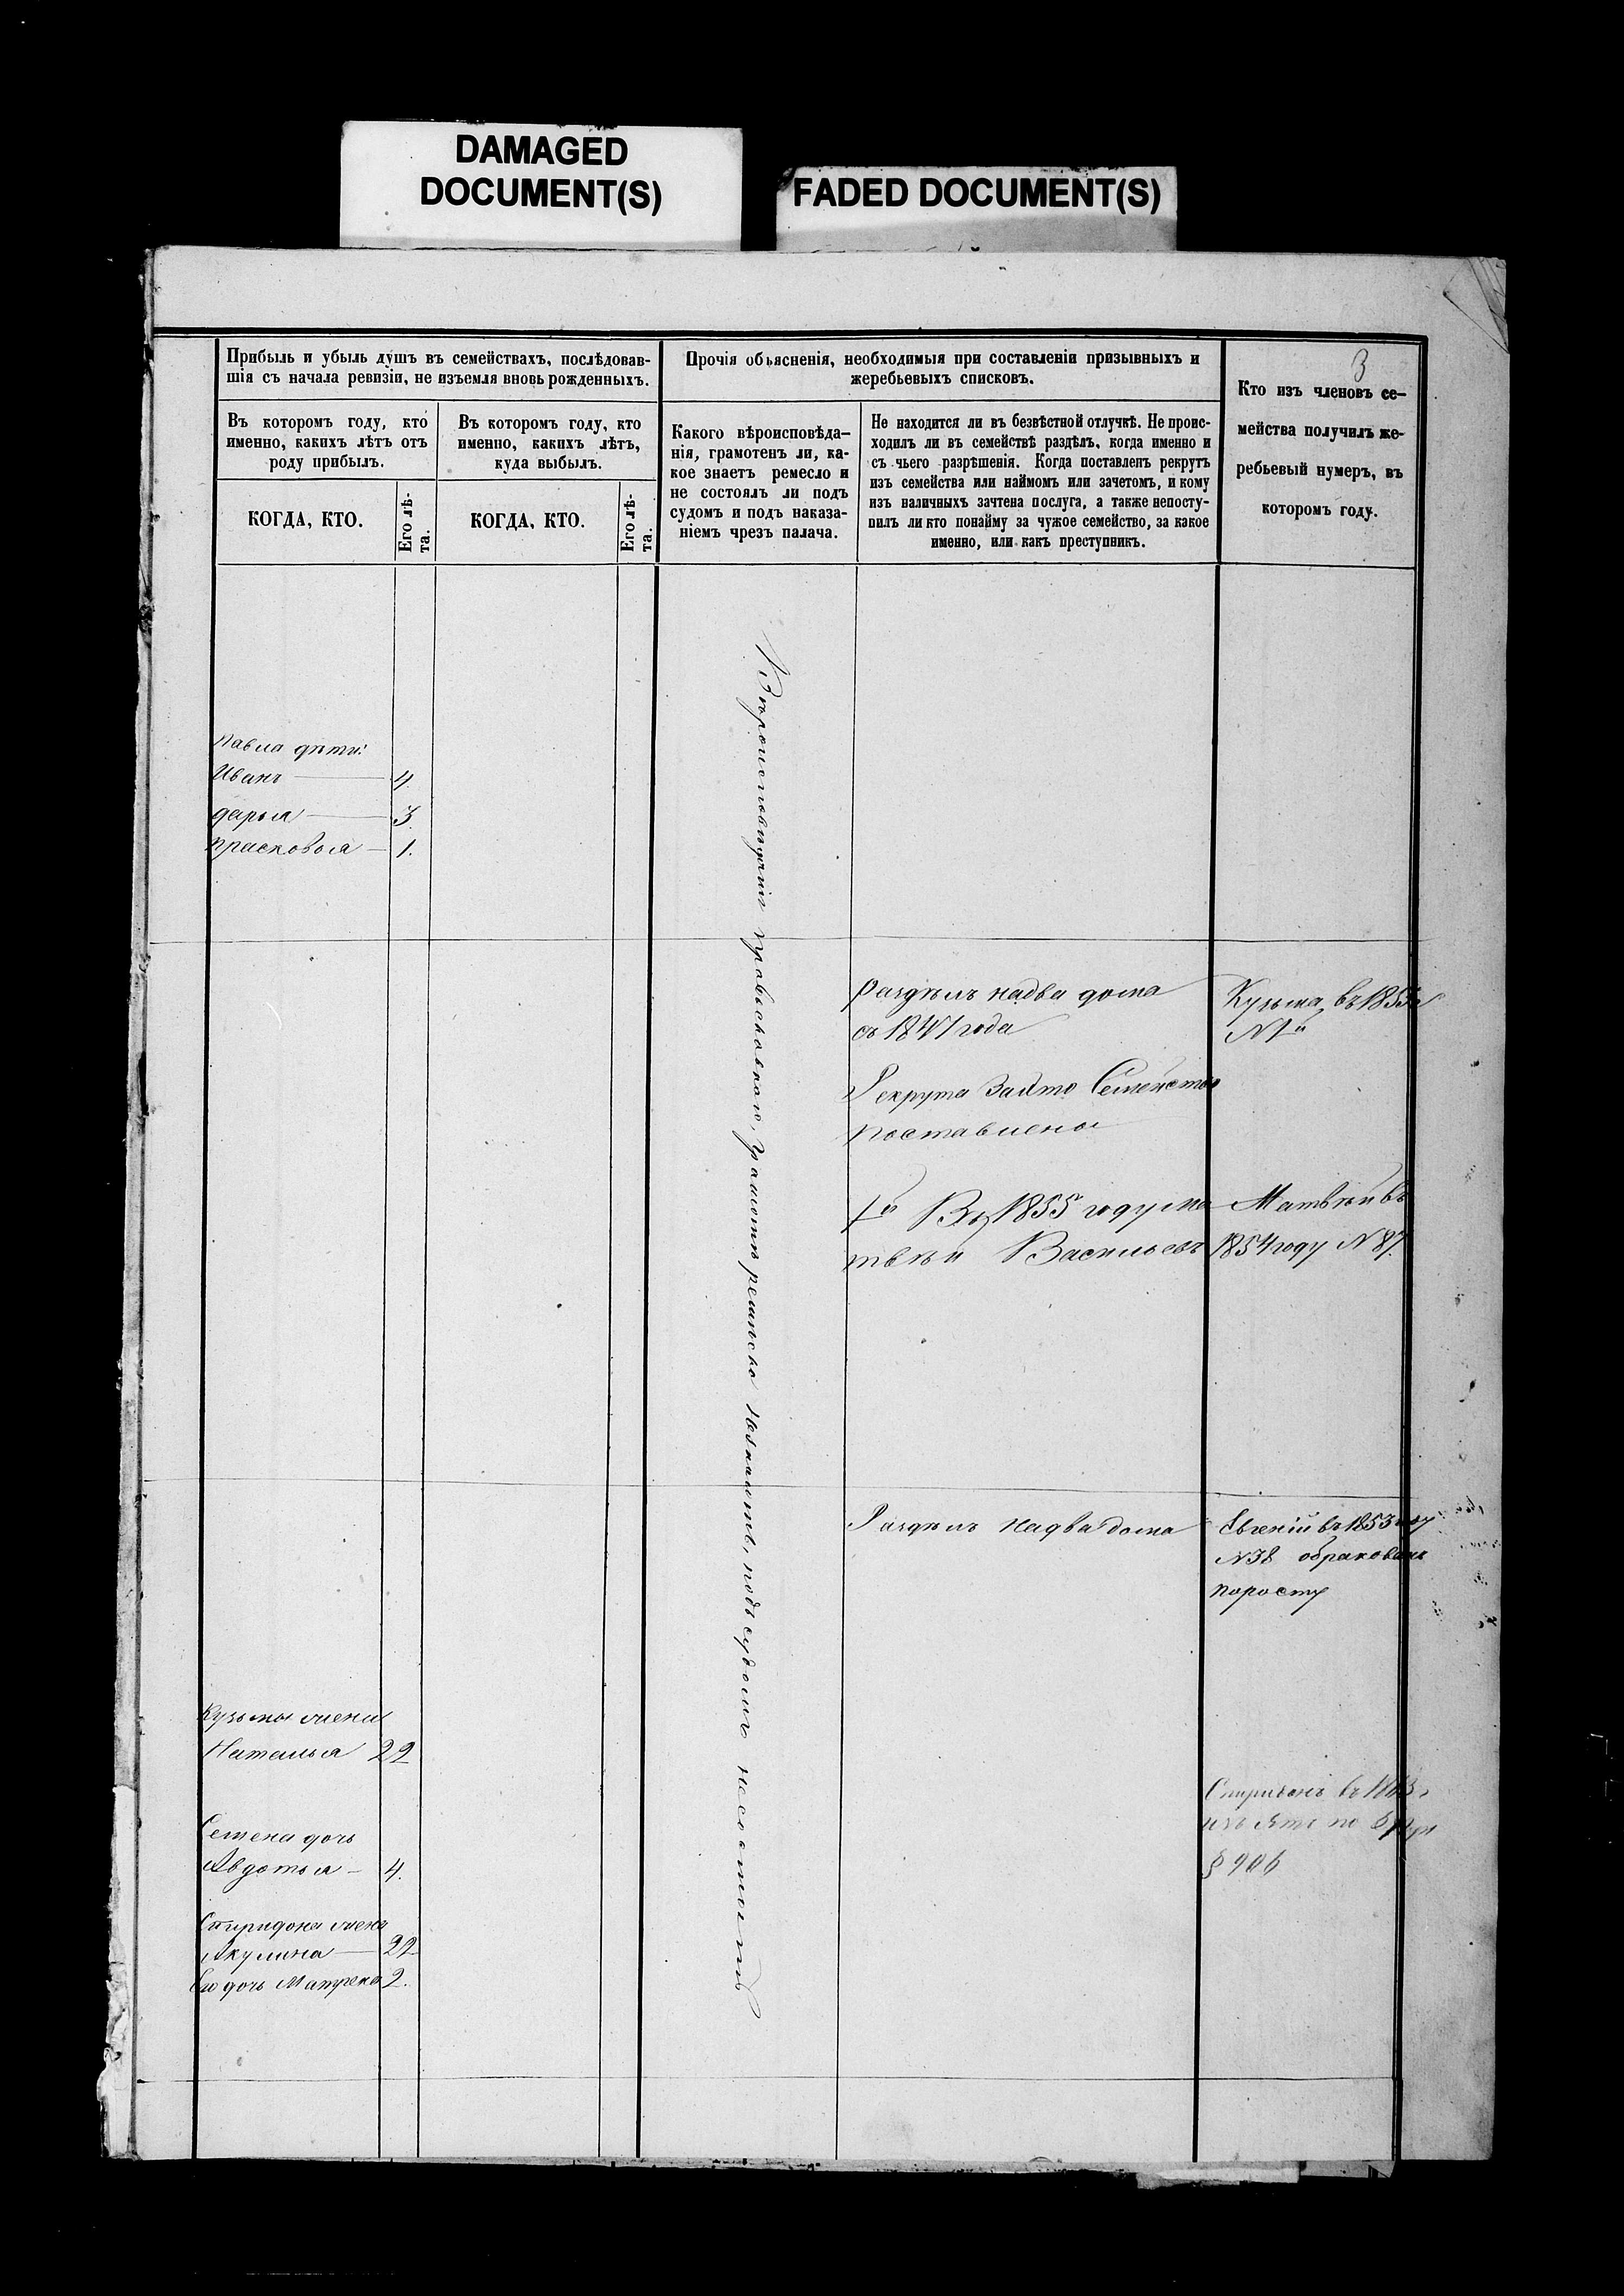 DAMAGED
DOCUMENT(S)
FADED DOCUMENT(S)
3
Прибыль и убыль душъ въ семействахъ, послѣдовав-
шія съ начала ревизіи, не изъемля вновь рожденныхъ.
Въ которомъ году, кто
именно, какихъ лѣтъ отъ
роду прибылъ.
КОГДА, КТО.
Его лѣ-
та.
Въ которомъ году, кто
именно, какихъ лѣтъ,
куда выбылъ.
КОГДА, КТО.
Его лѣ-
та.
Прочія объясненія, необходимыя при составленіи призывныхъ и
жеребьевыхъ списковъ.
Какого вѣроисповѣда-
нія, грамотенъ ли, ка-
кое знаетъ ремесло и
не состоялъ ли подъ
судомъ и подъ наказа-
ніемъ чрезъ палача.
Не находится ли въ безвѣстной отлучкѣ. Не проис-
ходилъ ли въ семействѣ раздѣлъ, когда именно и
съ чьего разрѣшенія. Когда поставленъ рекрутъ
изъ семейства или наймомъ или зачетомъ, и кому
изъ наличныхъ зачтена послуга, а также непосту-
пилъ ли кто понайму за чужое семейство, за какое
именно, или какъ преступникъ.
Кто изъ членовъ се-
мейства получилъ же-
ребьевый нумеръ, въ
которомъ году.
Павла дѣти:
Иванъ 4.
дарья 3.
прасковья 1.
Раздѣлъ на два дома
съ 1847 года
Кузьма въ 1855
N 1й
Рекрута за это Семейство
поставлены
1й Въ 1855 году Ма
твѣй Васильевъ
Матвѣй въ
1854 году N 87.
Раздѣлъ на два дома
Евгеній въ 1853 году
N 38 обракованъ
поросту
Кузьмы жена
Наталья 22
Семена дочь
Авдотья 4.
Спиридона жена
Акулина 22
Ея дочь Матрена 2.
Спиридонъ въ 1863
изъятъ по
§ 906
Вѣроисповѣданія православнаго, грамотѣ ремесла незнаютъ, подъ судомъ несостоятъ